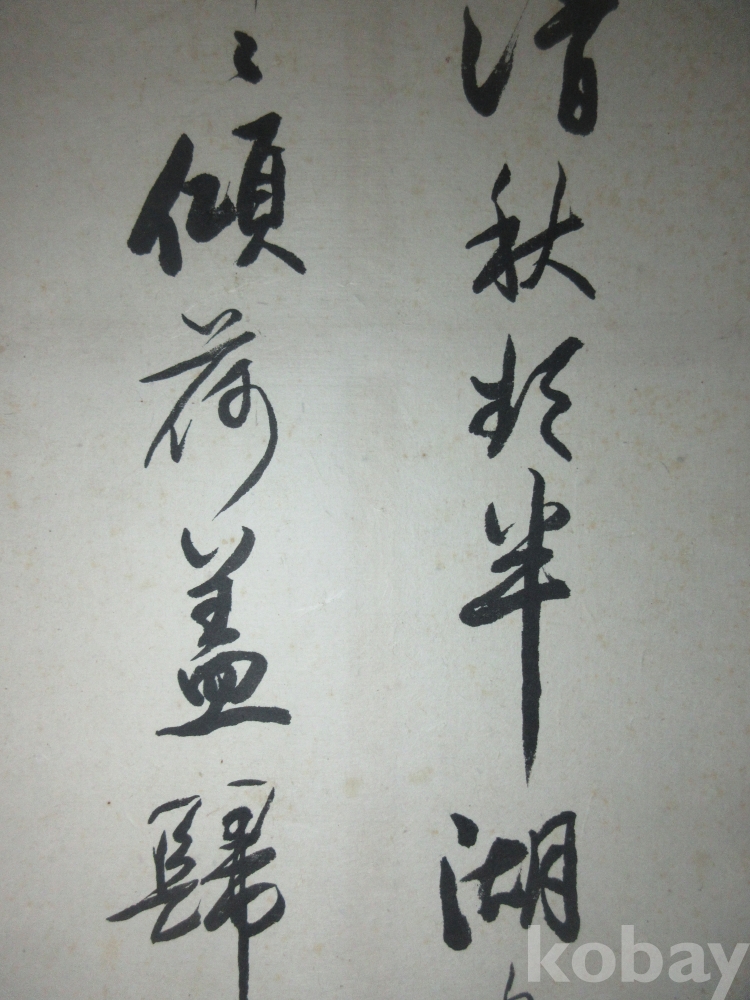 清秋於半湖
々傾荷盖歸
kobay